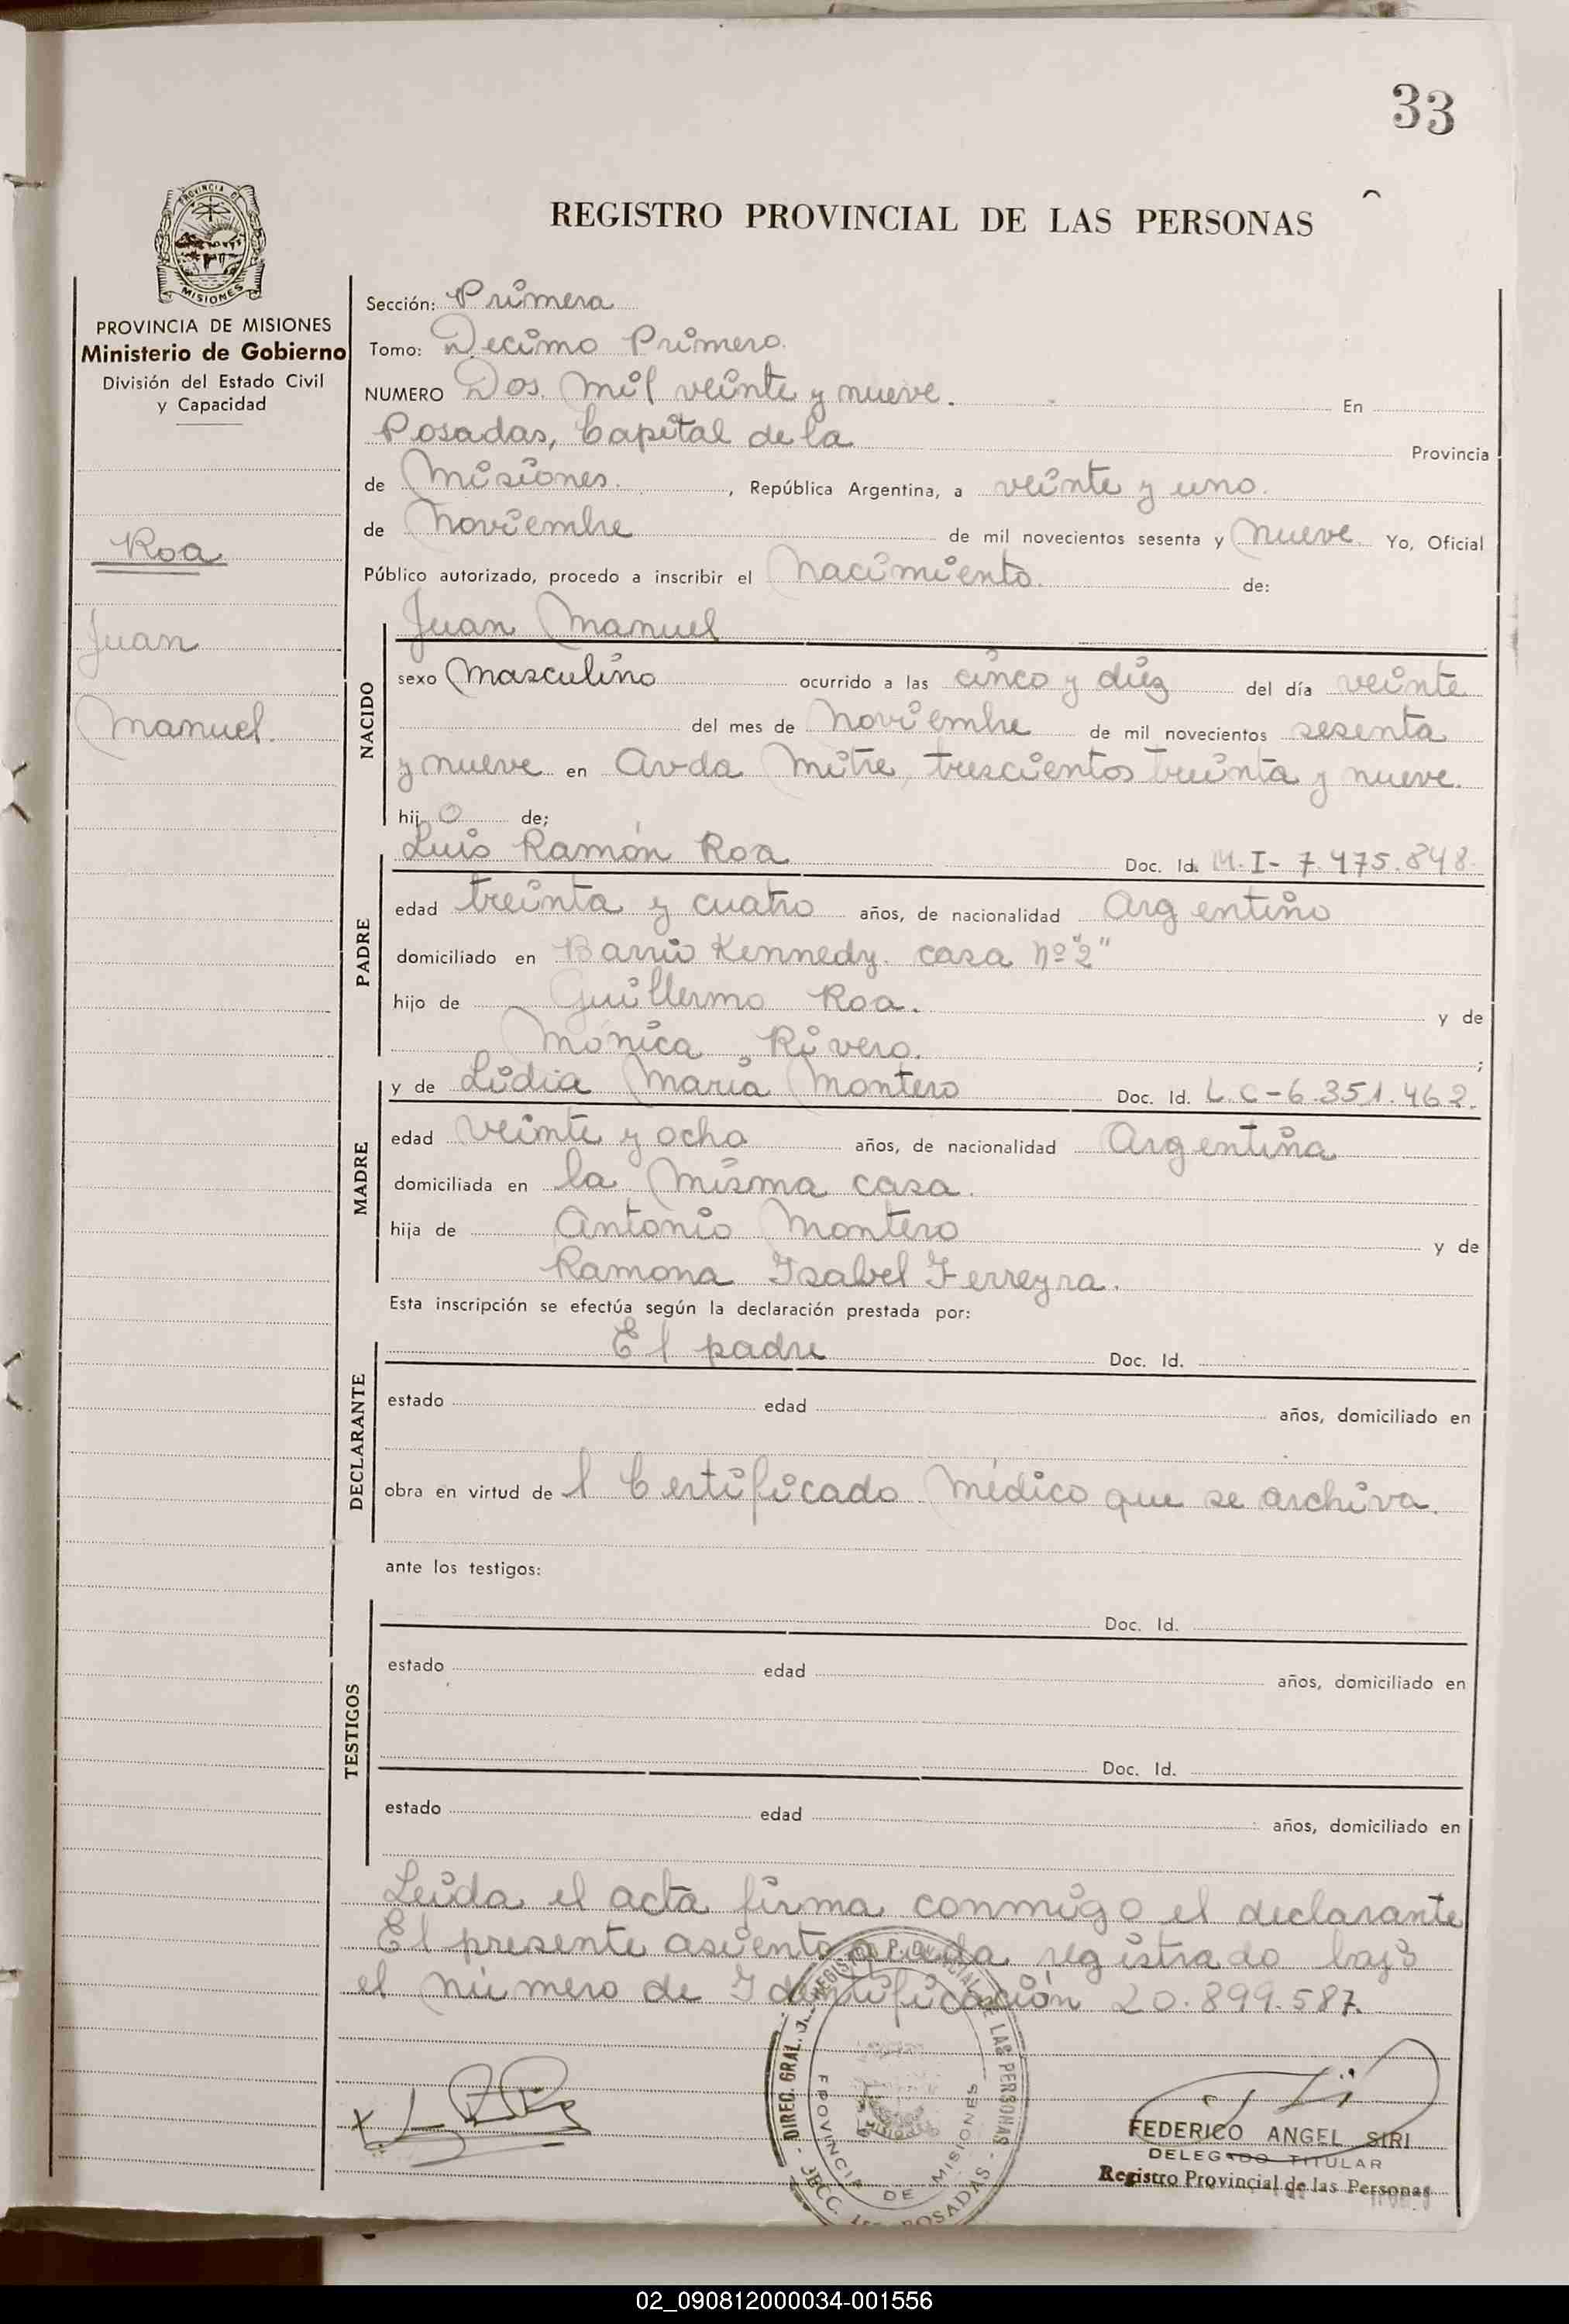 33
REGISTRO PROVINCIAL DE LAS PERSONAS
PROVINCIA DE
MISIONES
PROVINCIA DE MISIONES
Ministerio de Gobierno
División del Estado Civil
y Capacidad
Roa
Juan
Manuel.
Sección: Primera
Tomo: Decimo Primero.
NUMERO Dos mil veinte y nueve. En
Posadas, Capital de la Provincia
de Misiones. , República Argentina, a veinte y uno.
de Noviembre de mil novecientos sesenta y Nueve. Yo, Oficial
Público autorizado, procedo a inscribir el Nacimiento. de:
Juan Manuel
NACIDO
sexo Masculino ocurrido a las cinco y diez del día veinte
del mes de Noviembre de mil novecientos sesenta
y nueve en Avda Mitre, trescientos treinta y nueve.
hijo de;
Luis Ramón Roa Doc. Id. M.I- 7.475.848.
PADRE
edad treinta y cuatro años, de nacionalidad Argentino
domiciliado en Barrio Kennedy. casa Nº "2"
hijo de Guillermo Roa. y de
Mónica Rivero. ;
y de Lidia María Montero Doc. Id. L.C-6.351.462.
MADRE
edad veinte y ocho años, de nacionalidad Argentina
domiciliada en la misma casa.
hija de Antonio Montero y de
Ramona Isabel Ferreyra.
Esta inscripción se efectúa según la declaración prestada por:
El padre Doc. Id.
DECLARANTE
estado edad años, domiciliado en
obra en virtud de l Certificado Médico que se archiva.
ante los testigos:
Doc. Id.
TESTIGOS
estado edad años, domiciliado en
Doc. Id.
estado edad años, domiciliado en
Leida el acta firma conmigo el declarante
El presente asiento queda registrado bajo
el número de Identificación 20.899.587.
DIREC. GRAL. REGISTRO PROVINCIAL DE LAS PERSONAS
PROVINCIA DE MISIONES
SECC. 1ra POSADAS
FEDERICO ANGEL SIRI
DELEGADO TITULAR
Registro Provincial de las Personas
02_090812000034-001556